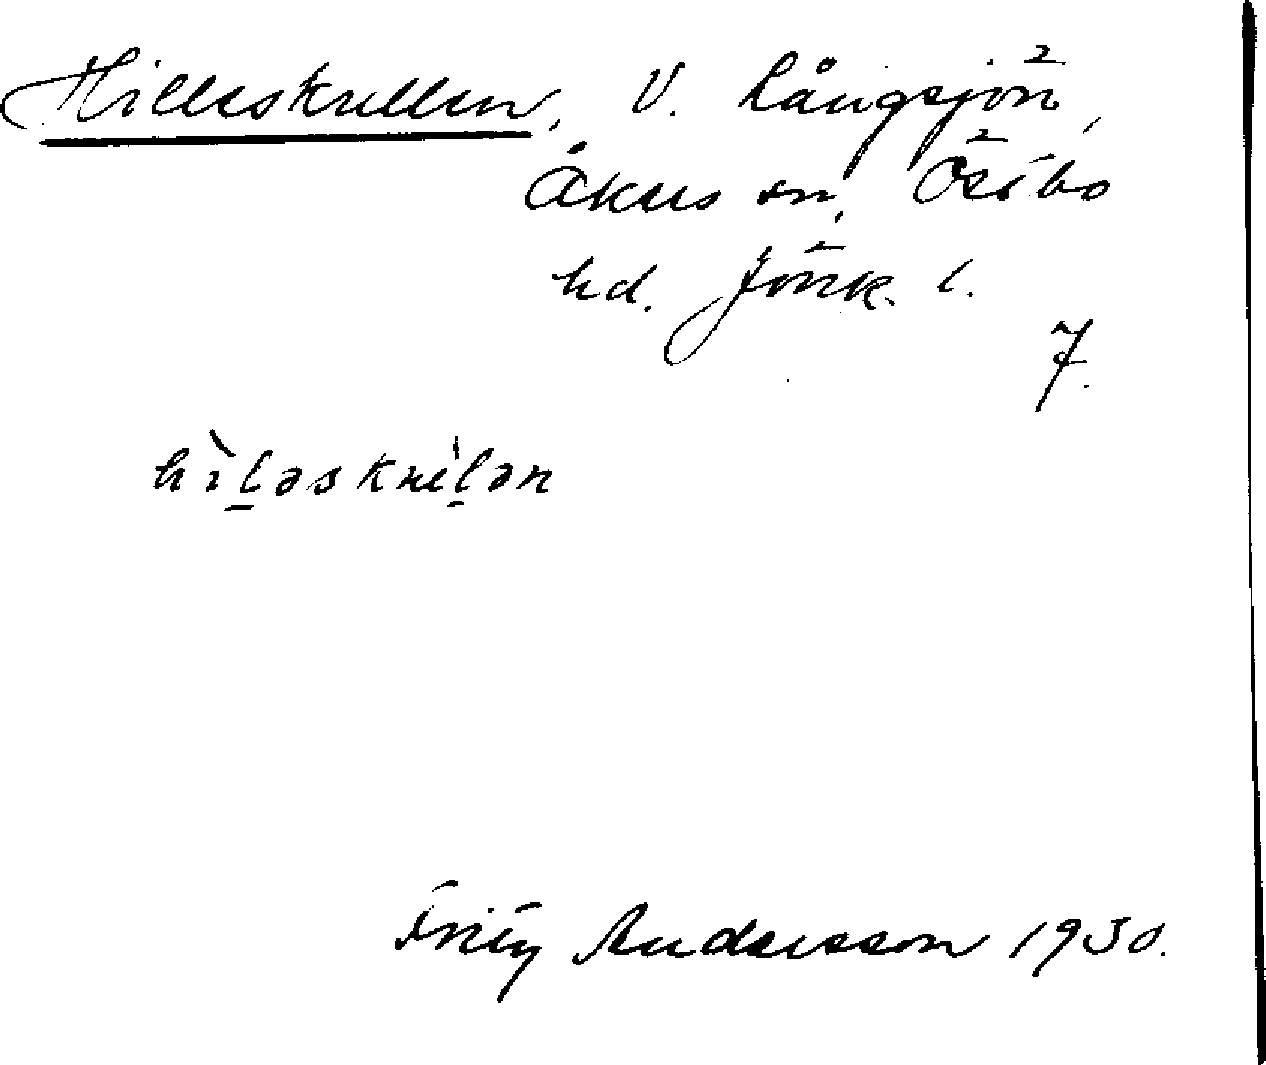 Hilleskullen, V. Långsjön,
Åkers sn, Östbo
hd. Jönk. l.
7.
hìl̠əskuˈl̠ən
Fritz Andersson 1930.